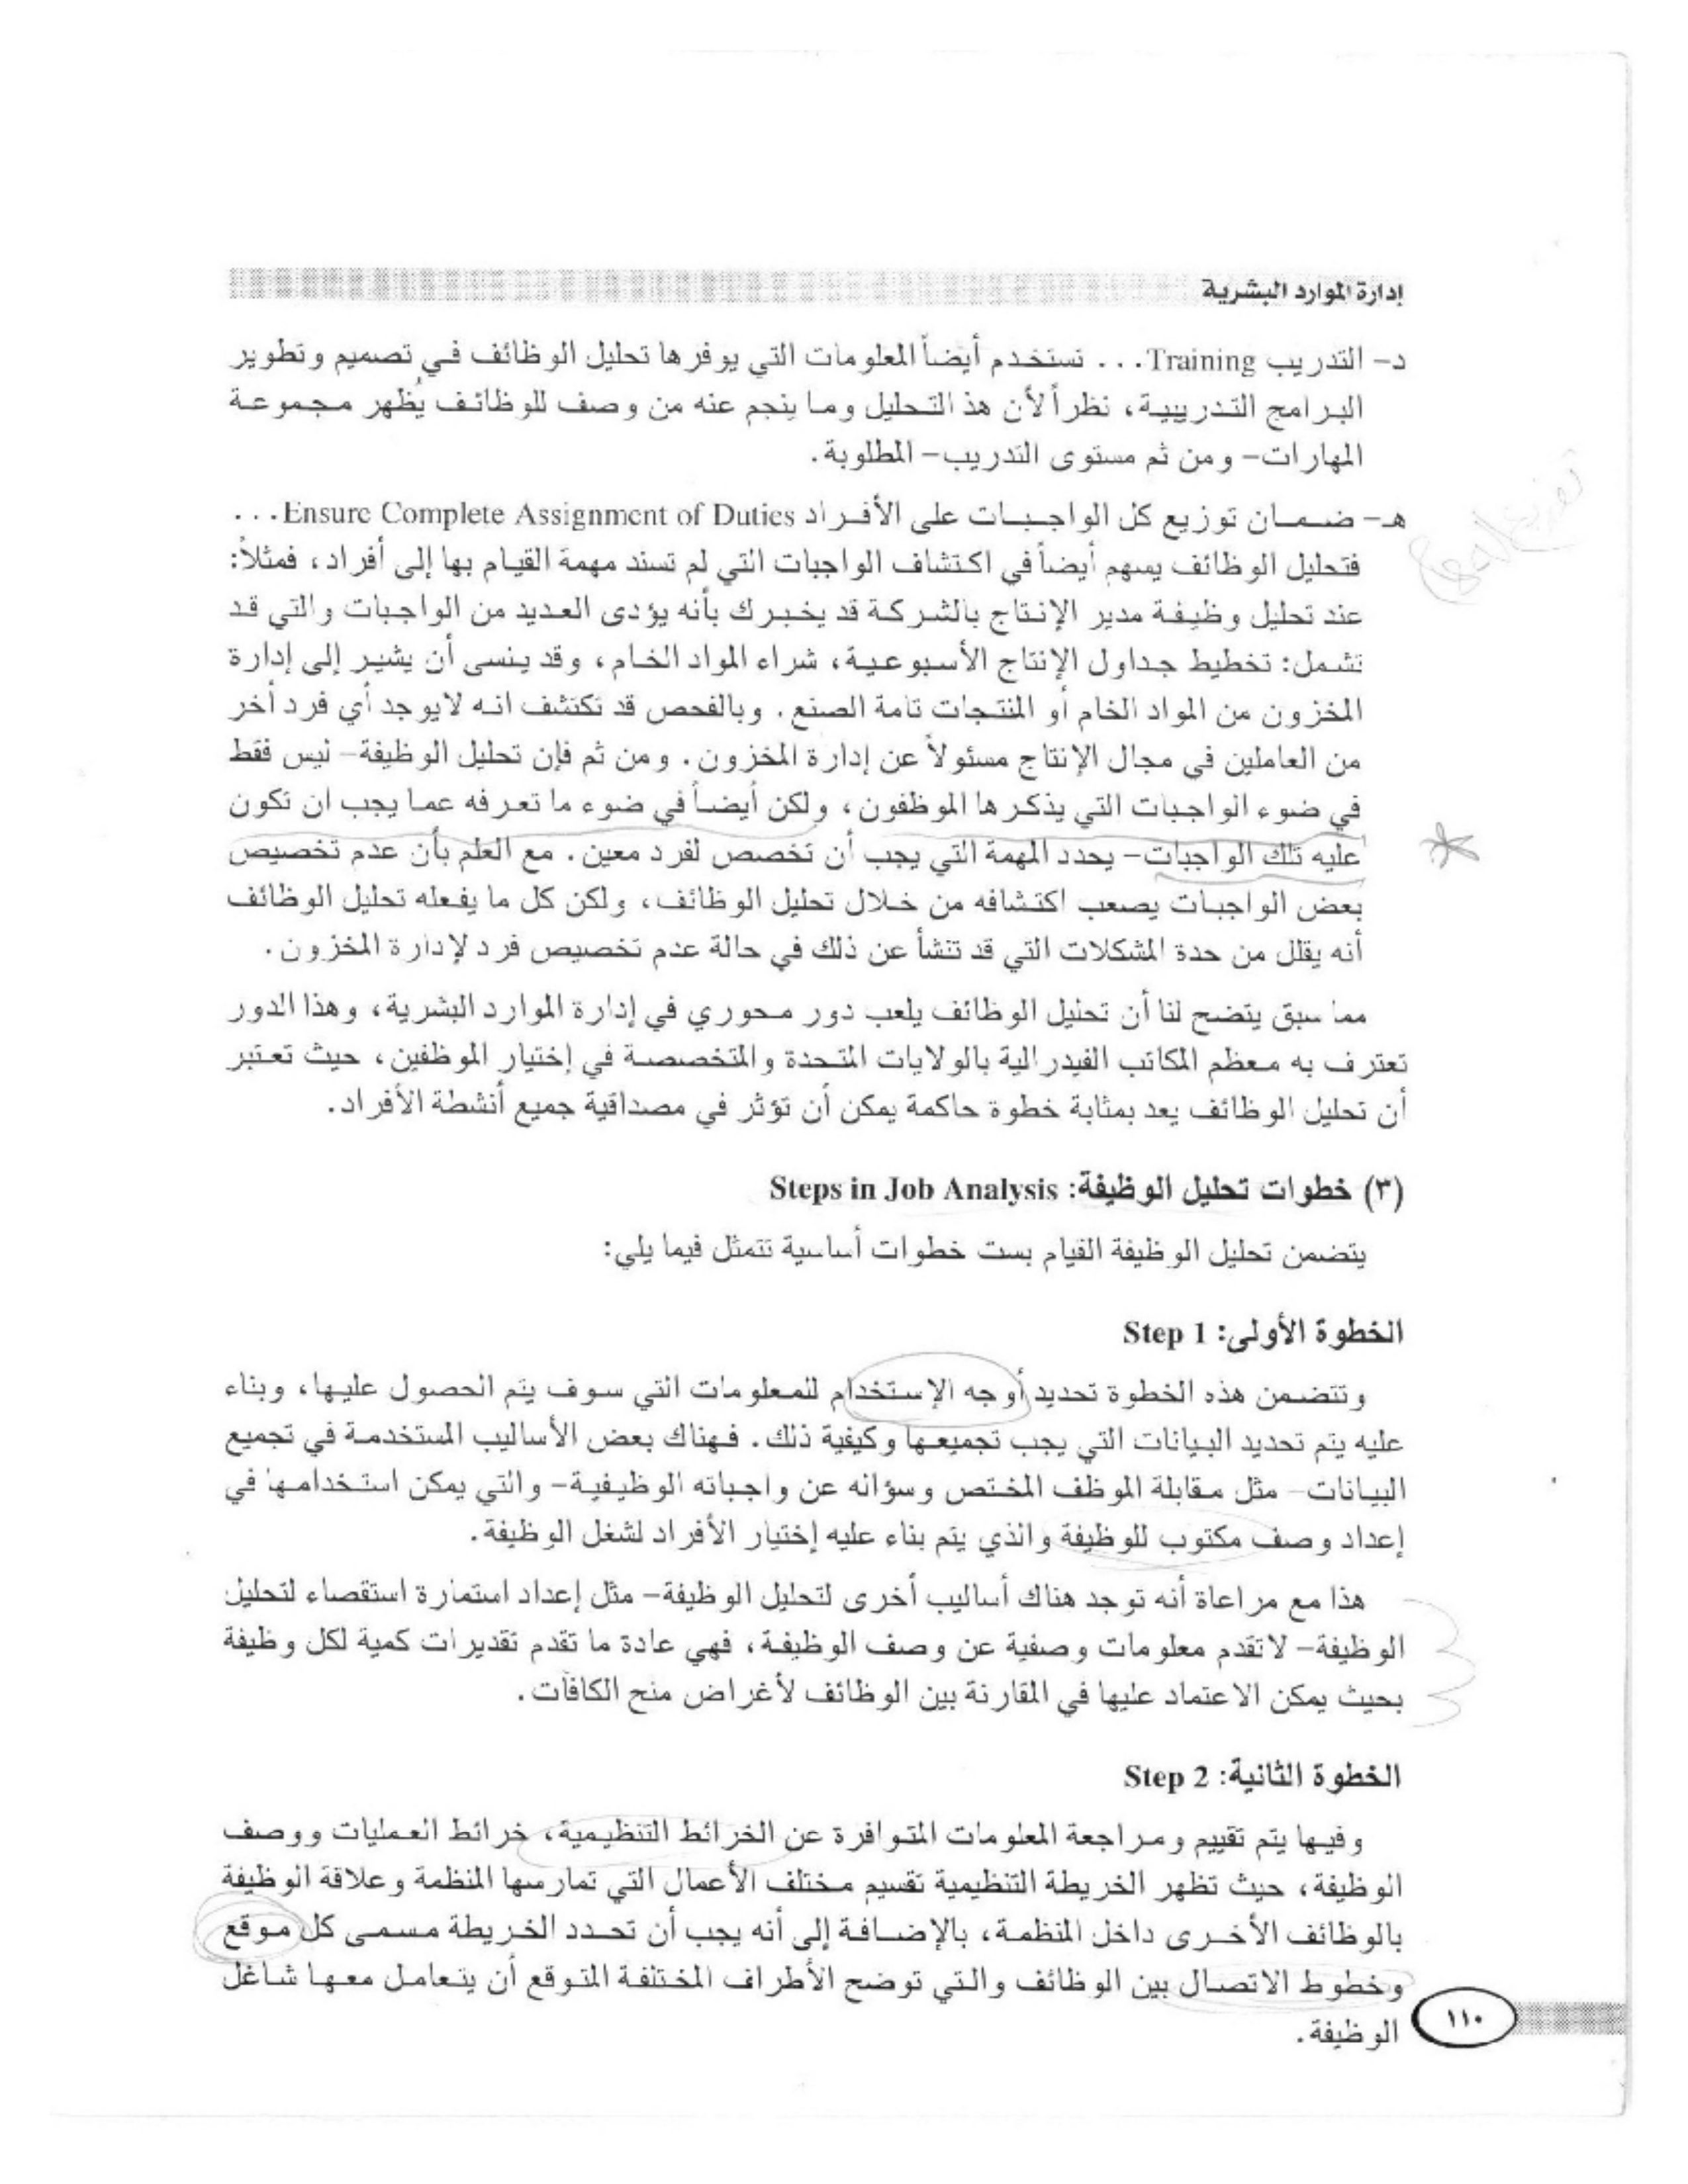 إدارة الموارد البشرية
د- التدريب Training... تستخدم أيضاً المعلومات التي يوفرها تحليل الوظائف في تصميم وتطوير
البرامج التدريبية، نظراً لأن هذ التحليل وما ينجم عنه من وصف للوظائف يُظهر مجموعة
المهارات- ومن ثم مستوى التدريب- المطلوبة.
هـ- ضمان توزيع كل الواجبات على الأفراد Ensure Complete Assignment of Duties...
فتحليل الوظائف يسهم أيضاً في اكتشاف الواجبات التي لم تسند مهمة القيام بها إلى أفراد، فمثلاً:
عند تحليل وظيفة مدير الإنتاج بالشركة قد يخبرك بأنه يؤدى العديد من الواجبات والتي قد
تشمل: تخطيط جداول الإنتاج الأسبوعية، شراء المواد الخام، وقد ينسى أن يشير إلى إدارة
المخزون من المواد الخام أو المنتجات تامة الصنع. وبالفحص قد تكتشف انه لايوجد أي فرد أخر
من العاملين في مجال الإنتاج مسئولاً عن إدارة المخزون. ومن ثم فإن تحليل الوظيفة- ليس فقط
في ضوء الواجبات التي يذكرها الموظفون، ولكن أيضاً في ضوء ما تعرفه عما يجب ان تكون
عليه تلك الواجبات- يحدد المهمة التي يجب أن تخصص لفرد معين. مع العلم بأن عدم تخصيص
بعض الواجبات يصعب اكتشافه من خلال تحليل الوظائف، ولكن كل ما يفعله تحليل الوظائف
أنه يقلل من حدة المشكلات التي قد تنشأ عن ذلك في حالة عدم تخصيص فرد لإدارة المخزون.
مما سبق يتضح لنا أن تحليل الوظائف يلعب دور محوري في إدارة الموارد البشرية، وهذا الدور
تعترف به معظم المكاتب الفيدرالية بالولايات المتحدة والمتخصصة في إختيار الموظفين، حيث تعتبر
أن تحليل الوظائف يعد بمثابة خطوة حاكمة يمكن أن تؤثر في مصداقية جميع أنشطة الأفراد.
(٣) خطوات تحليل الوظيفة: Steps in Job Analysis
يتضمن تحليل الوظيفة القيام بست خطوات أساسية تتمثل فيما يلي:
الخطوة الأولى: Step 1
وتتضمن هذه الخطوة تحديد أوجه الإستخدام للمعلومات التي سوف يتم الحصول عليها، وبناء
عليه يتم تحديد البيانات التي يجب تجميعها وكيفية ذلك. فهناك بعض الأساليب المستخدمة في تجميع
البيانات- مثل مقابلة الموظف المختص وسؤاله عن واجباته الوظيفية- والتي يمكن استخدامها في
إعداد وصف مكتوب للوظيفة والذي يتم بناء عليه إختيار الأفراد لشغل الوظيفة.
هذا مع مراعاة أنه توجد هناك أساليب أخرى لتحليل الوظيفة- مثل إعداد استمارة استقصاء لتحليل
الوظيفة- لاتقدم معلومات وصفية عن وصف الوظيفة، فهي عادة ما تقدم تقديرات كمية لكل وظيفة
بحيث يمكن الاعتماد عليها في المقارنة بين الوظائف لأغراض منح الكافآت.
الخطوة الثانية: Step 2
وفيها يتم تقييم ومراجعة المعلومات المتوافرة عن الخرائط التنظيمية، خرائط العمليات ووصف
الوظيفة، حيث تظهر الخريطة التنظيمية تقسيم مختلف الأعمال التي تمارسها المنظمة وعلاقة الوظيفة
بالوظائف الأخرى داخل المنظمة، بالإضافة إلى أنه يجب أن تحدد الخريطة مسمى كل موقع
وخطوط الاتصال بين الوظائف والتي توضح الأطراف المختلفة المتوقع أن يتعامل معها شاغل
الوظيفة.
١١٠